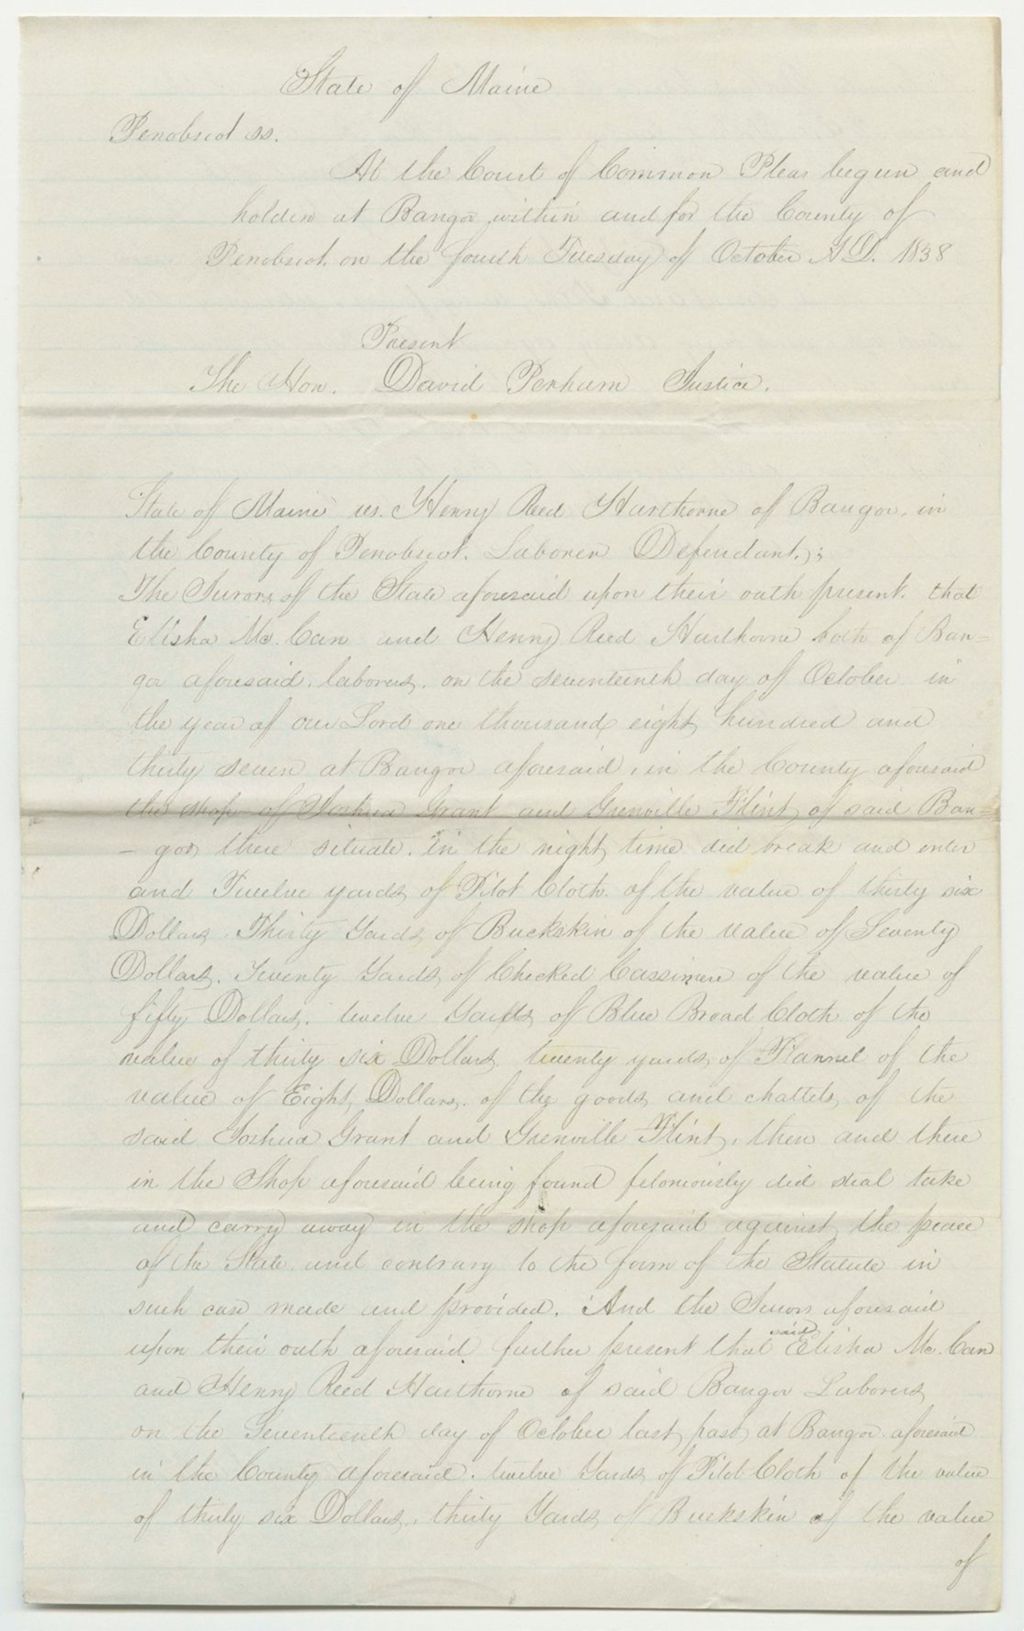 State of Maine
Penobscot ss.
At the Court of Common Pleas begun and
holden at Bangor within and for the County of
Penobscot on the fourth Tuesday of October A.D. 1838
Present
The Hon. David Perham Justice.
State of Maine vs. Henry Reed Harthorne of Bangor, in
the County of Penobscot. Laborer Defendant.;
The Jurors of the State aforesaid upon their oath present. that
Elisha Mc. Can and Henry Reed Harthorne both of Ban=
gor aforesaid. laborers. on the seventeenth day of October in
the year of our Lord one thousand eight hundred and
thirty seven at Bangor aforesaid, in the County aforesaid
the shop of Joshua Grant and Grenville Flint of said Ban=
- gor there situate. in the night time did break and enter
and Twelve yards of Pilot Cloth of the value of thirty six
Dollars. Thirty Yards of Buckskin of the value of Seventy
Dollars. Twenty Yards of Checked Cassimere of the value of
fifty Dollars. twelve Yards of Blue Broad Cloth of the
value of thirty six Dollars twenty yards of Flannel of the
value of Eight Dollars. of the goods and chattels of the
said Joshua Grant and Grenville Flint, then and there
in the Shop aforesaid being found feloniously did steal take
and carry away in the shop aforesaid against the peace
of the State and contrary to the form of the Statute in
such case made and provided. And the Jurors aforesaid
upon their oath aforesaid. further present that said Elisha Mc. Can
and Henry Reed Harthorne of said Bangor Laborers
on the Seventeenth day of October last past at Bangor aforesaid
in the County aforesaid. twelve Yards of Pilot Cloth of the value
of thirty six Dollars. thirty Yards of Buckskin of the value
of